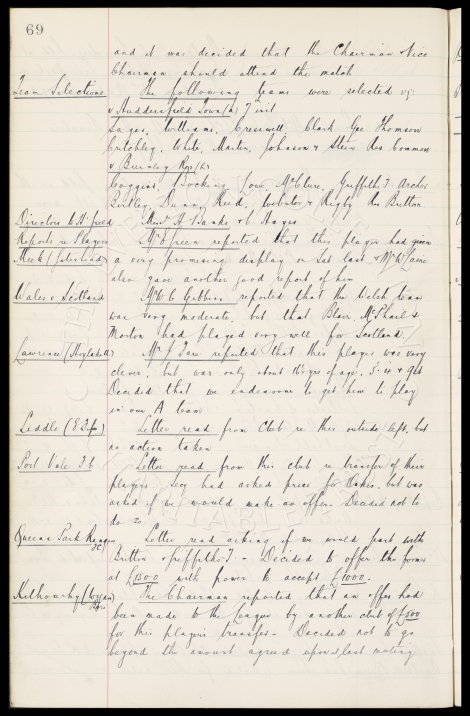 69
and it was decided that the Chairman & Vice
Chairman should attend the match
Team Selections The following teams were selected viz:
v Huddersfield Town (a) 7 inst
Sagar, Williams, Cresswell, Clark Gee Thomson
Critchley, White, Martin, Johnson & Stein Res Common
v Burnley Res (h)
Coggins, Bocking, Lowe, McClure, Griffiths T. Archer
Birtley, Dunn, Reed, Webster & Rigby Res Britton
Directors to H'field Messrs H Banks & C Hayes
Reports re Players Mr Green reported that this player had given
Meek (Gateshead) a very promising display on Sat last & Mr W Clare
also gave another good report of him
Wales v Scotland Mr W C Gibbins reported that the Welsh team
was very moderate, but that Blair, McPhail &
Morton had played very well for Scotland
Lawrence (Hoylake A) Mr J Sawyer reported that this player was very
clever, but was only about 16 yrs of age, 5.4 & 9st
Decided that we endeavour to get him to play
in our A team
Liddle (E Fife) Letter read from Club re this outside left, but
no action taken
Port Vale F C Letter read from this club re transfer of their
players. Secy had asked price for Oakes, but was
asked if we would make an offer. Decided not to
do so
Queens Park Rangers Letter read asking if we would part with
FC Britton - Griffiths T. - Decided to offer the former
at £1500 with power to accept £1000.
The Chairman reported that an offer had
been made to the League by another club of £500
for this players transfer - Decided not to go
beyond the amount agreed upon at last meeting